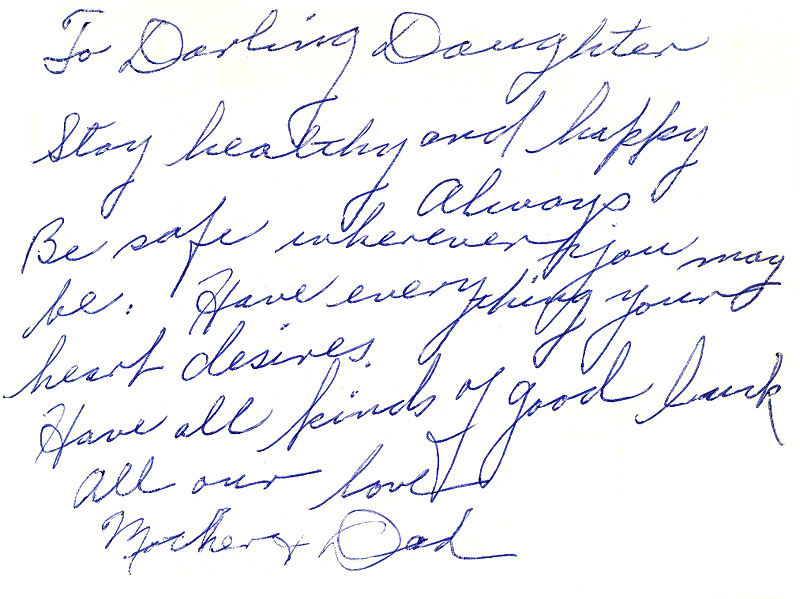 To Darling Daughter
Stay healthy and happy
Always
Be safe wherever you may
be. Have everything your
heart desires.
Have all kinds of good luck
All our love
Mother & Dad